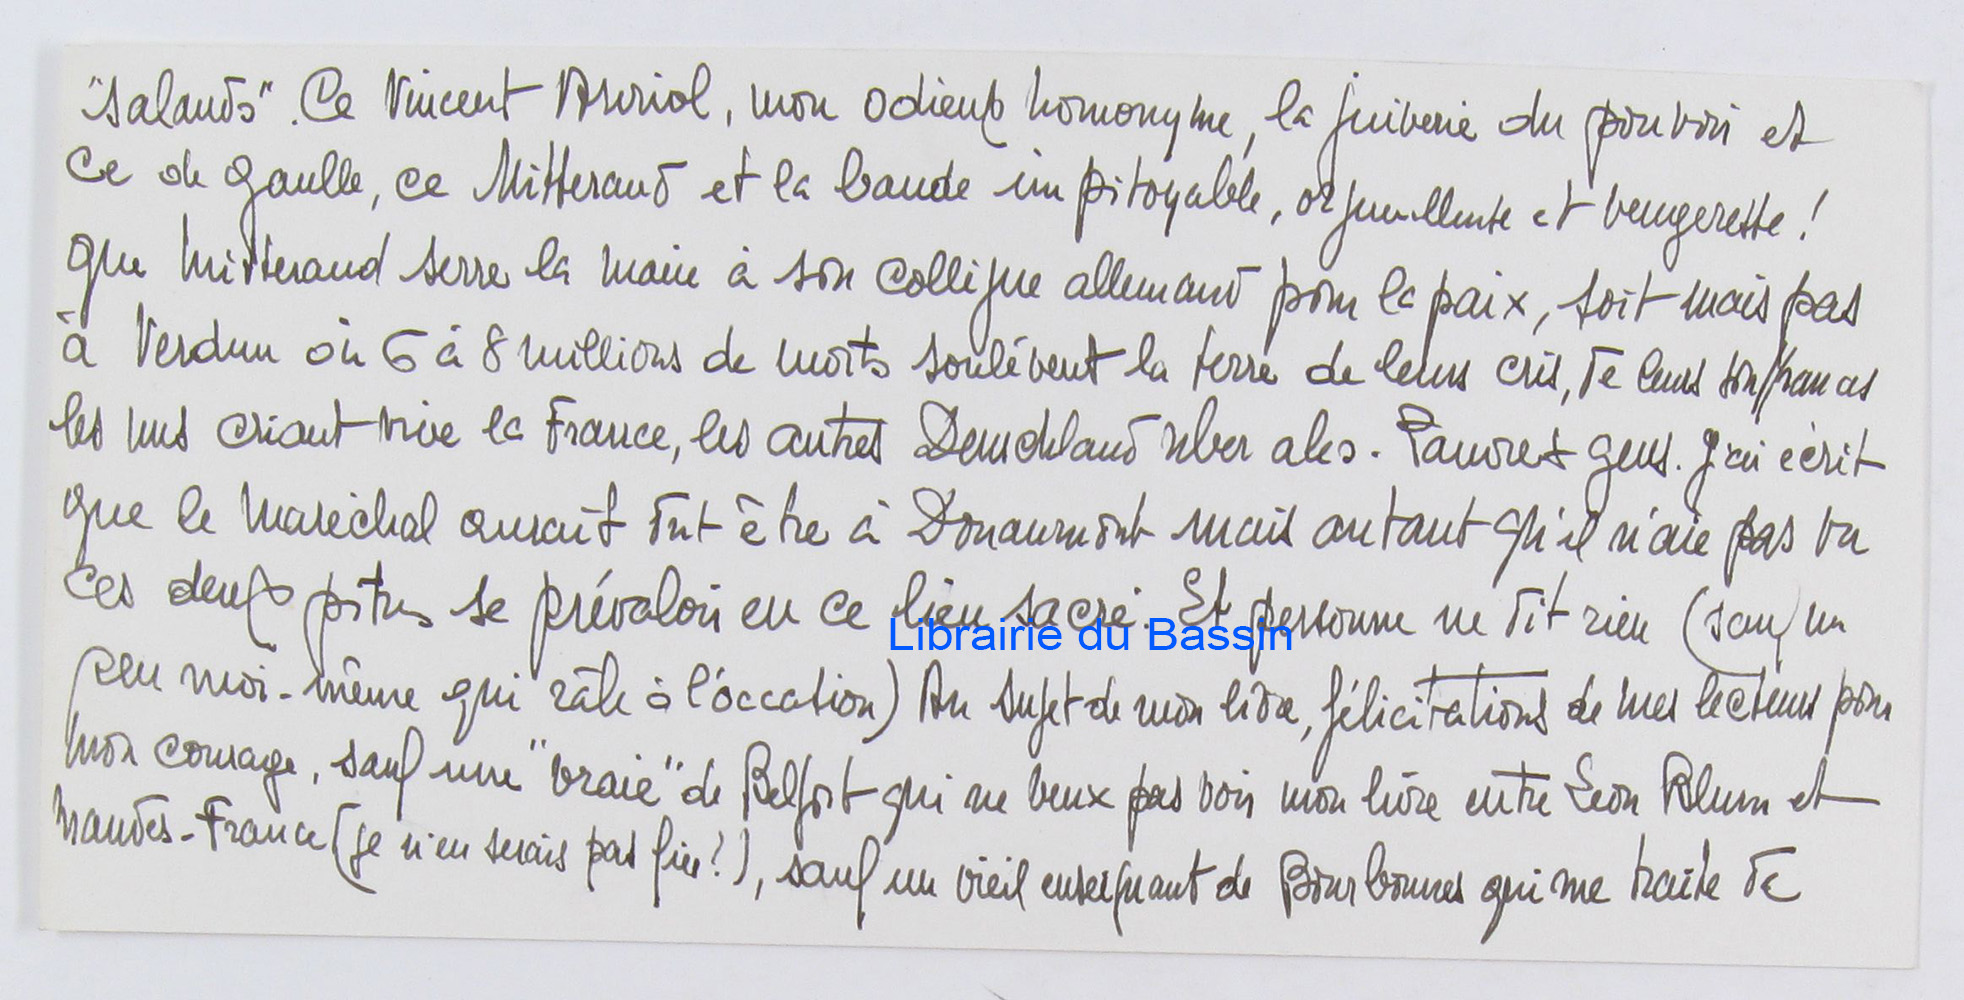 "salauds". Ce Vincent Auriol, mon odieux homonyme, la juiverie du pouvoir et
ce de Gaulle, ce Mitterand et la bande impitoyable, orgueilleuse et vengeresse !
que Mitterand serre la main à son collègue allemand pour la paix, soit mais pas
à Verdun où 6 à 8 millions de morts soulèvent la terre de leurs cris, de leurs souffrances
les uns criant vive la France, les autres Deuchland uber ales. Pauvres gens. J'ai écrit
que le Maréchal aurait dut être à Douaumont mais autant qu'il n'aie pas vu
ces deux pitres se prévaloir en ce lieu sacré. Et personne ne dit rien (sauf un
peu moi-même qui râle à l'occation) Au sujet de mon livre, félicitations de mes lecteurs pour
mon courage, sauf une "vraie" de Belfort qui ne veux pas voir mon livre entre Léon Blum et
Mandès-France (je n'en serais pas fier !), sauf un vieil enseignant de Bourbonnes qui me traite de
Librairie du Bassin